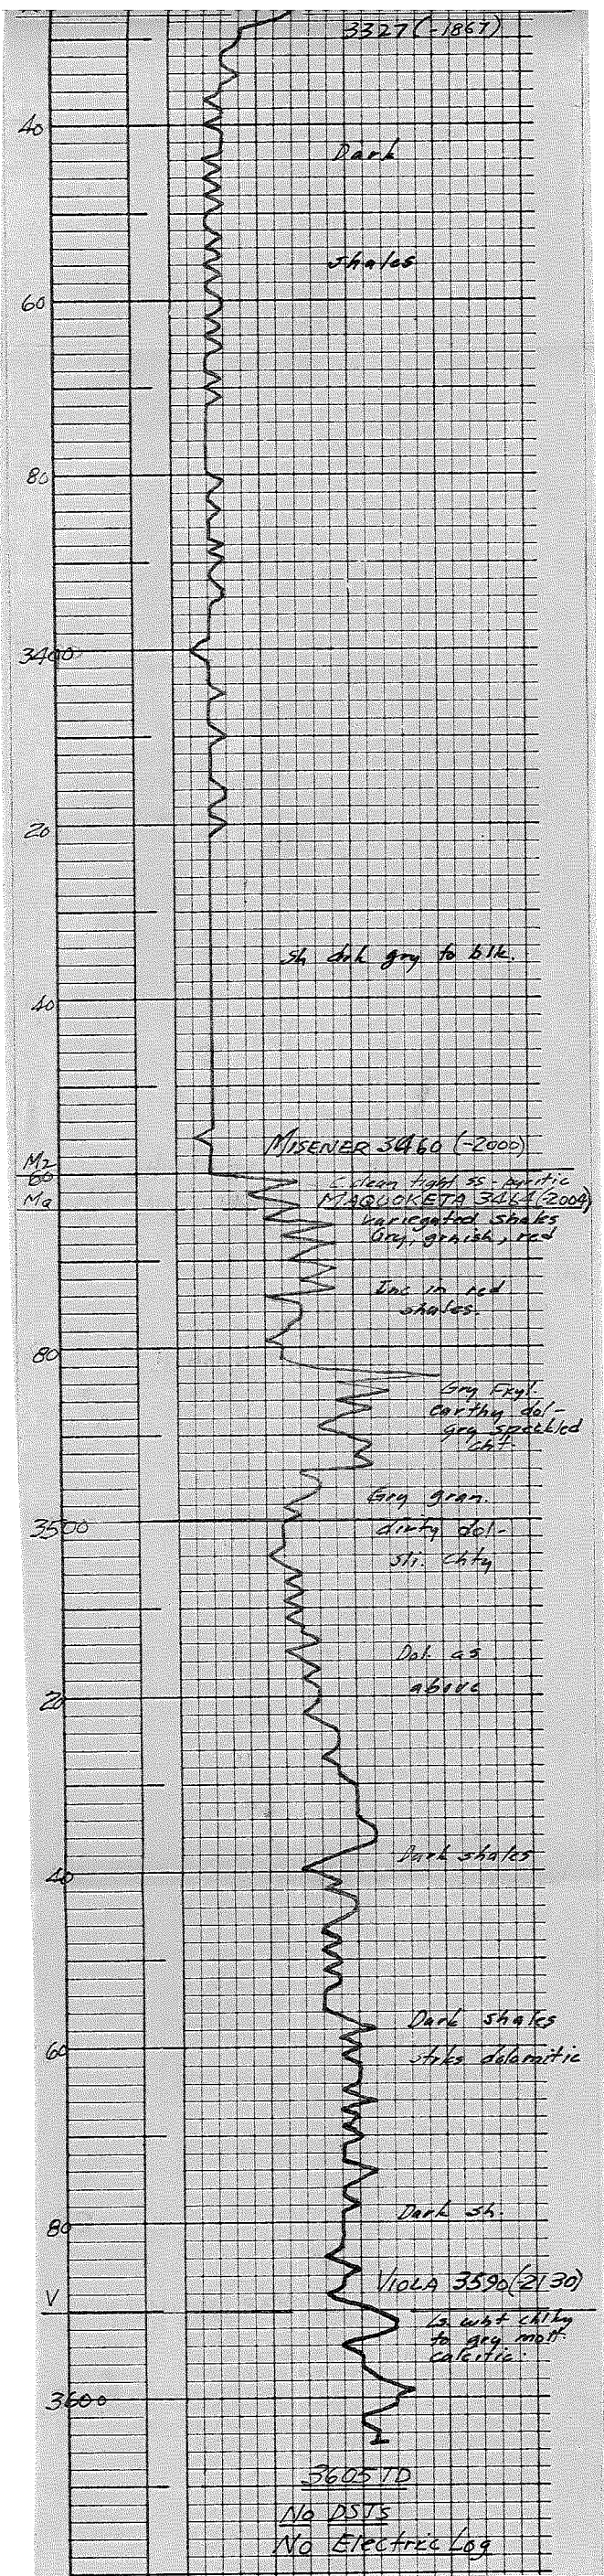 3327 (-1867)
40
Dark
shales
60
80
3400
20
sh drk gry to blk.
40
MISENER 3460 (-2000)
Mz
60
clean tight ss - pyritic
Mq
MAQUOKETA 3464 (-2004)
variegated shales
Gry, grnish, red
Inc in red
shales.
80
Gry Fxyl.
earthy dol-
gry speckled
cht.
Gry gran.
3500
dirty dol-
sli. chty
Dol. as
above
20
Dark shales
40
Dark shales
60
strks dolomitic
Dark sh.
80
VIOLA 3590 (-2130)
V
Ls wht chlky
to gry mott.
calcitic.
3600
3605 TD
No DSTs
No Electric Log